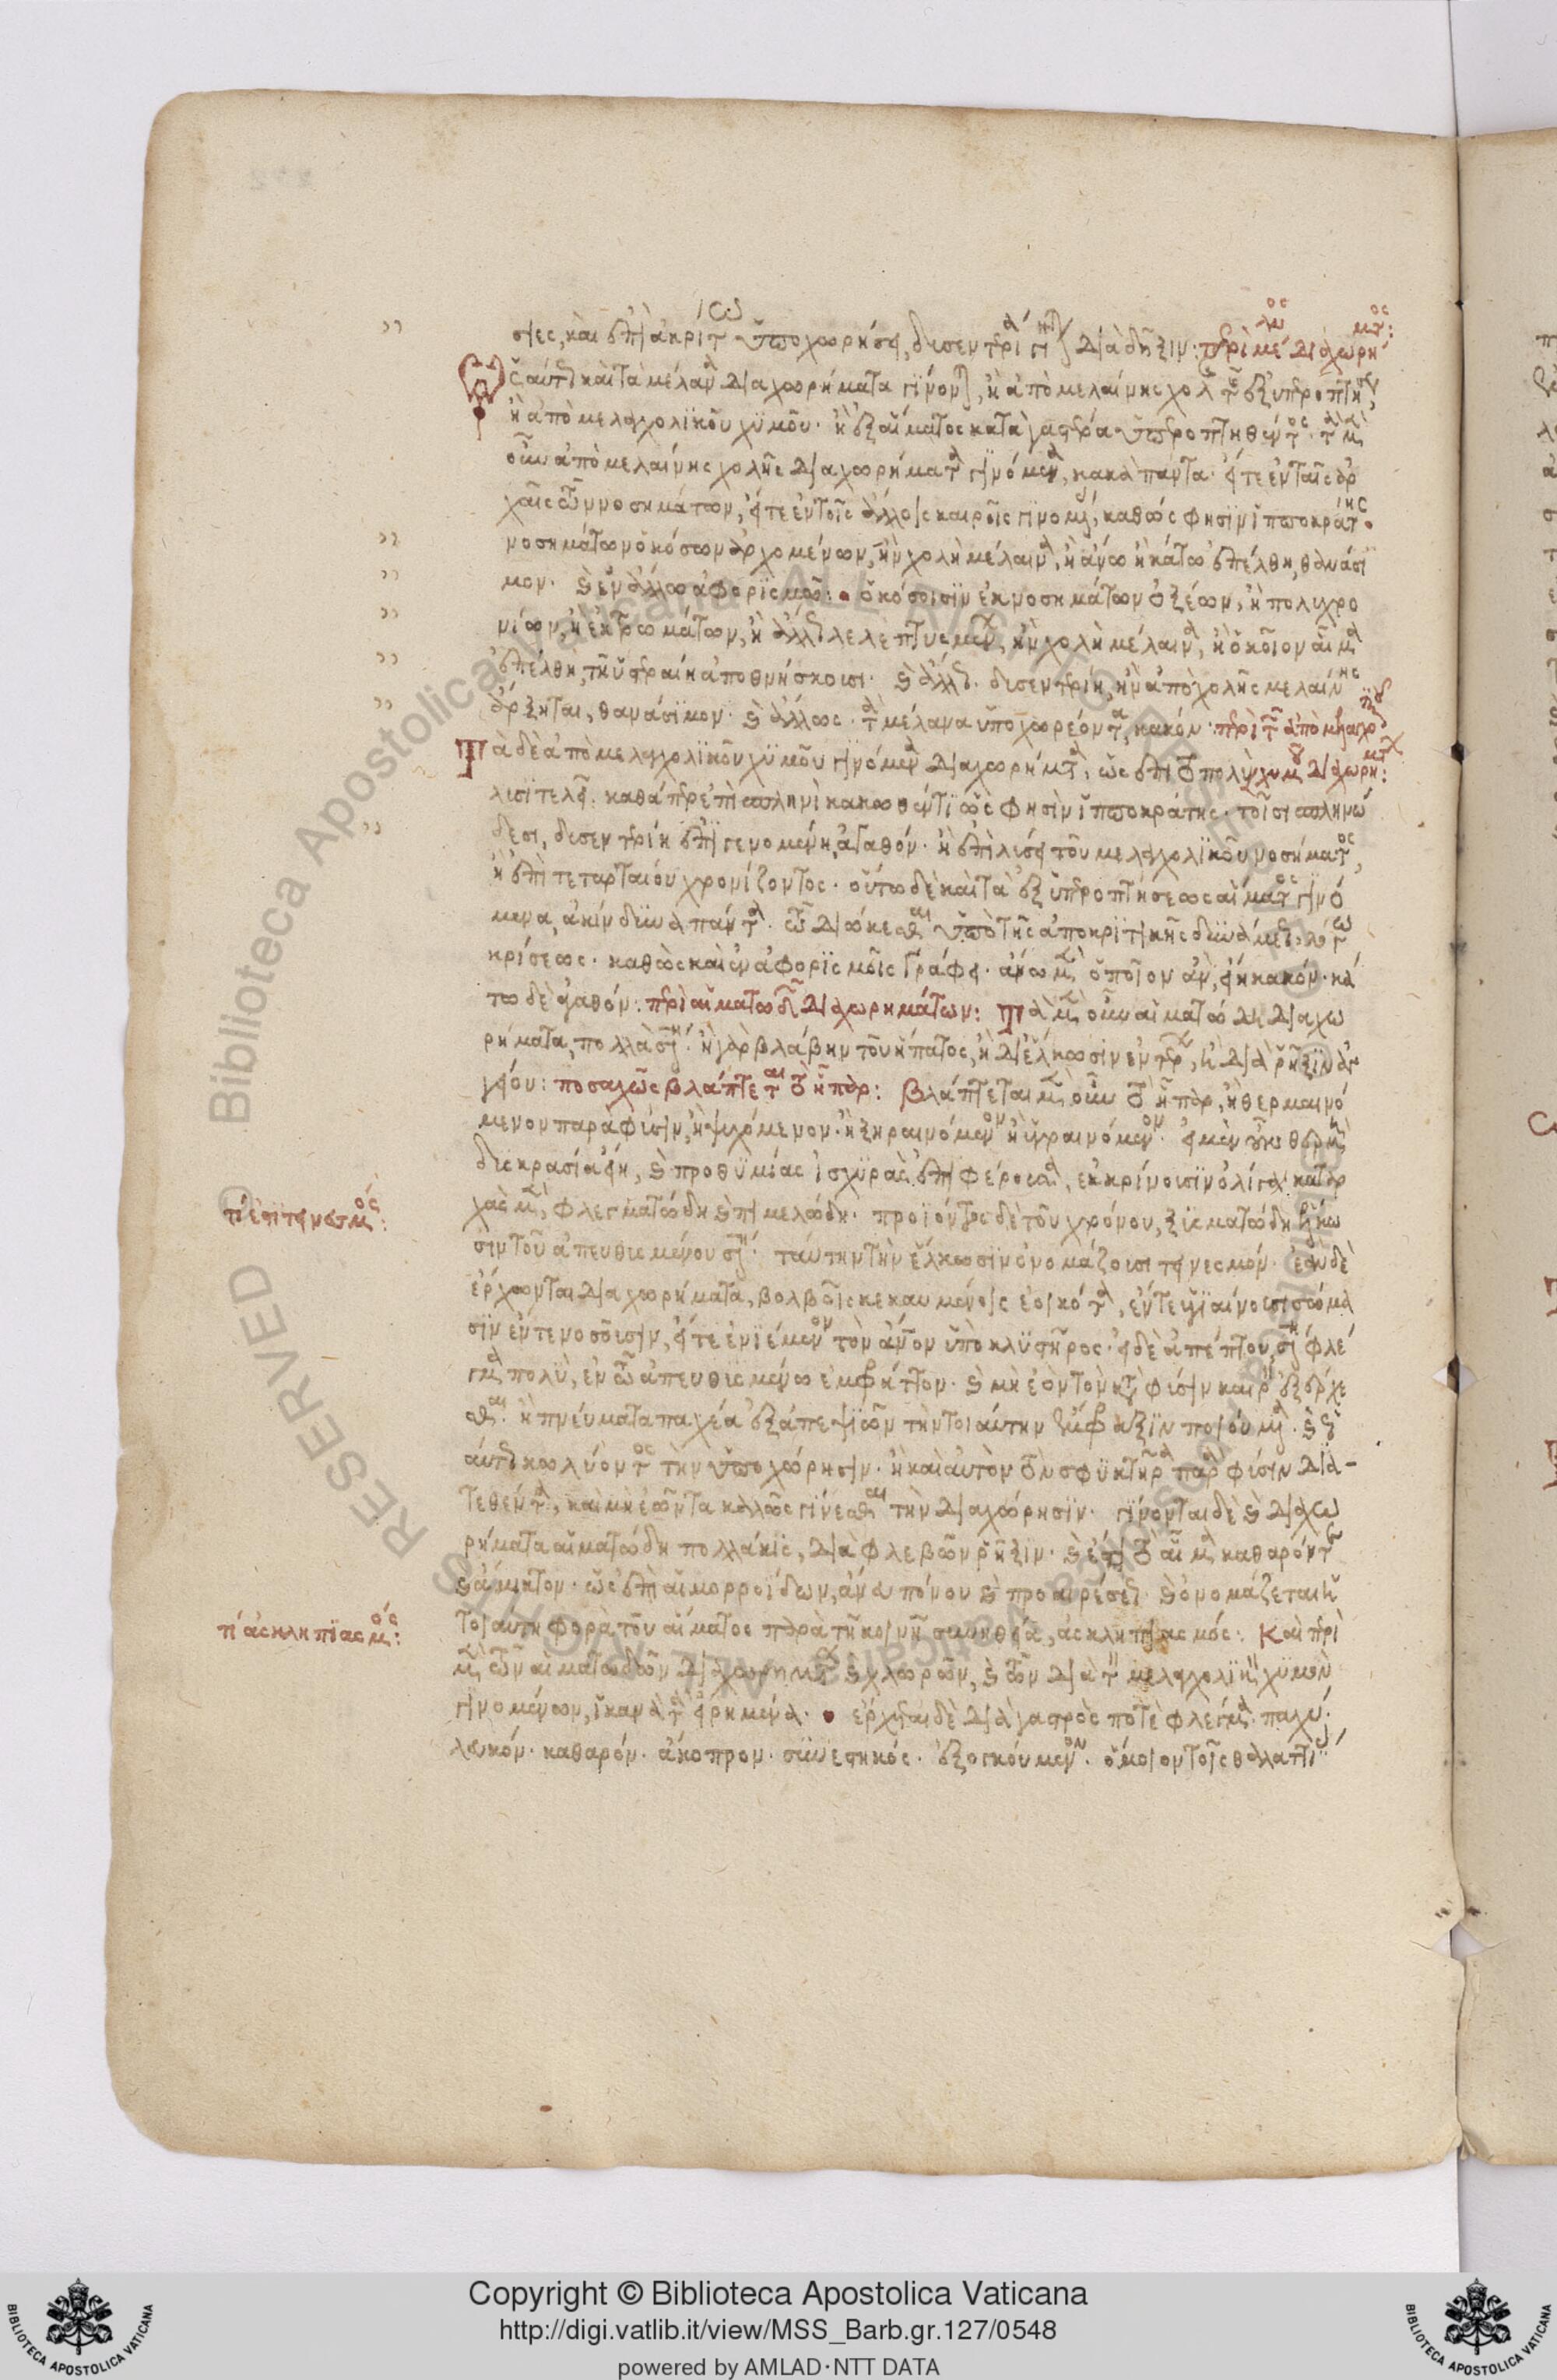 σιες, καὶ ἐπὶ ἀκρίτω ὑποχωρήσει, δυσεντερία γίνεται διὰ δῆξιν: περὶ μέλανος διαχωρήματος:
ὡσαύτως καὶ τὰ μέλανα διαχωρήματα γίνονται, ἢ ἀπὸ μελαίνης χολῆς
ἢ ἀπὸ μελαγχολικοῦ χυμοῦ· ἢ ἐξ αἵματος κατὰ γαστέρα
οὖν ἀπὸ μελαίνης χολῆς διαχωρήματα γινόμενα, κακὰ πάντα· εἴτε ἐν ταῖς ἀρ
χαῖς τῶν νοσημάτων, εἴτε ἐν τοῖς ἄλλοις καιροῖς γινόμενα, καθώς φησιν ἱπποκράτης·
νοσημάτων ὁκόσων ἀρχομένων, ἢν χολὴ μέλαινα, ἢ ἄνω ἢ κάτω ἐπέλθη, θανάσι
μον· καὶ ἐν ἄλλω ἀφορισμῶ: ὁκόσοισιν ἐκ νοσημάτων ὀξέων, ἢ πολυχρο
νίων, ἢ ἐκ τρωμάτων, ἢ ἄλλως λελεπτυσμένων, ἢν χολὴ μέλαινα, ἢ ὁκοῖον αἷμα
ἐπέλθη, τῆ ὑστεραίη ἀποθνήσκουσι· καὶ ἄλλως· δυσεντερίη, ἢν ἀπὸ χολῆς μελαίνης
ἄρξηται, θανάσιμον· καὶ ἄλλως· τὰ μέλανα ὑποχωρέοντα, κακόν· περὶ τῶν ἀπὸ μελαγχολικοῦ
Τὰ δὲ ἀπὸ μελαγχολικοῦ χυμοῦ γινόμενα διαχωρήματα, ὡς ἐπὶ τὸ πολὺ χυμοῦ διαχωρημάτων:
λυσιτελεῖ· καθάπερ ἐπὶ σπληνὶ κακωθέντι ὥς φησιν ἱπποκράτης· τοῖσι σπληνώ
δεσι, δυσεντερίη ἐπιγενομένη, ἀγαθόν· ἢ ἐπὶ λύσει τοῦ μελαγχολικοῦ νοσήματος,
ἢ ἐπὶ τεταρταίου χρονίζοντος· οὕτω δὲ καὶ τὰ ἐξ ὑπεροπτήσεως αἵματος γινό
μενα, ἀκίνδυνα πάντα· τῶ διώκεσθαι ὑπὸ τῆς ἀποκριτικῆς δυνάμεως
κρίσεως· καθὼς καὶ ἐν ἀφορισμοῖς γράφει· ἄνω μὲν ὁποῖον ἂν εἴη κακόν· κά
τω δὲ ἀγαθόν: περὶ αἱματωδῶν διαχωρημάτων: Τὰ μὲν οὖν αἱματώδη διαχω
ρήματα, πολλὰ ἐστί· ἢ γὰρ βλάβην τοῦ ἥπατος, ἢ δι' ἕλκωσιν ἐντέρων, ἢ διὰ ῥῆξιν ἀγ
γείου: ποσαχῶς βλάπτεται τὸ ἧπαρ: βλάπτεται μὲν οὖν τὸ ἧπαρ, ἢ θερμαινό
μενον παρὰ φύσιν, ἢ ψυχόμενον· ἢ ξηραινόμενον ἢ ὑγραινόμενον· εἰ μὲν οὖν θερμὴ
δυσκρασία εἴη, καὶ προθυμίας ἰσχυρὰς ἐπιφέρουσα, ἐκκρίνουσιν ὀλίγα κατ' ἀρ
χὰς μὲν, φλεγματώδη καὶ πιμελώδη· προϊόντος δὲ τοῦ χρόνου, ξυσματώδη
σιν τοῦ ἀπευθυσμένου ἐστί· ταύτην τὴν ἕλκωσιν ὀνομάζουσι τεινεσμόν·
ἔρχωνται διαχωρήματα, βολβοῖς κεκαυμένοις ἐοικότα, ἔν τε ὑγιαίνουσι σώμα
σιν ἔν τε νοσοῦσιν,
γμα πολὺ, ἐν τῶ ἀπευθυσμένω ἐμφράττον· καὶ μὴ ἐῶν τὸν κατὰ φύσιν καιρὸν ἐξέρχε
σθαι· ἢ πνεύματα παχέα ἐξ ἀπεψιῶν τὴν τοιαύτην ἔμφραξιν ποιούμενα·
αὐτῶς κωλύοντος τὴν ὑποχώρησιν· ἢ καὶ αὐτὸν τὸν σφυγκτῆρα παρὰ φύσιν δια-
τεθέντα, καὶ μὴ ἐῶντα καλῶς γίνεσθαι τὴν διαχώρησιν· γίνονται δὲ καὶ διαχω
ρήματα αἱματώδη πολλάκις, διὰ φλεβῶν ῥῆξιν· καὶ ἔστι τὸ αἷμα καθαρόν τε
καὶ ἄμικτον· ὡς ἐπὶ αἱμορροΐδων, ἄνευ πόνου καὶ προαιρέσεως· καὶ ὀνομάζεται ἡ
τοιαύτη φορὰ τοῦ αἵματος παρὰ τῆ κοινῆ συνηθεία, ἀσκληπιασμός: Καὶ περὶ
μὲν τῶν αἱματωδῶν διαχωρημάτων καὶ χλωρῶν, καὶ τῶν διὰ τὸν μελαγχολικὸν χυμὸν
γινομένων, ἱκανὰ τὰ εἰρημένα· ἔρχεται δὲ διὰ γαστρός ποτε φλέγμα· παχύ·
λευκόν· καθαρόν· ἄκοπρον· συνεστηκός· ὁμοῖον τοῖς θαλαττί
τί ἐστι τεινεσμός:
τί ἀσκληπιασμός:
Copyright © Biblioteca Apostolica Vaticana
http://digi.vatlib.it/view/MSS_Barb.gr.127/0548
powered by AMLAD·NTT DATA
BIBLIOTECA APOSTOLICA VATICANA
BIBLIOTECA APOSTOLICA VATICANA